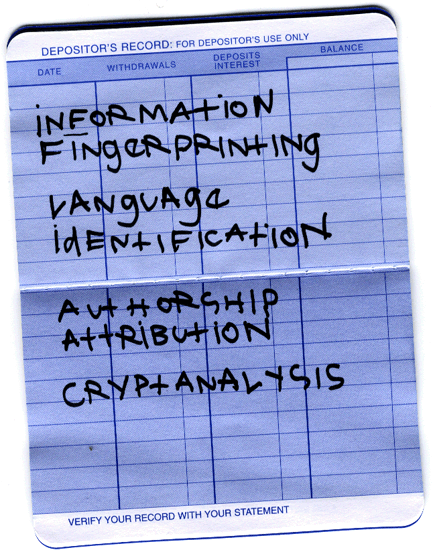 DEPOSITOR'S RECORD: FOR DEPOSITOR'S USE ONLY
DATE WITHDRAWALS DEPOSITS INTEREST BALANCE
INFORMATION
FINGERPRINTING
LANGUAGE
IDENTIFICATION
AUTHORSHIP
ATTRIBUTION
CRYPTANALYSIS
VERIFY YOUR RECORD WITH YOUR STATEMENT